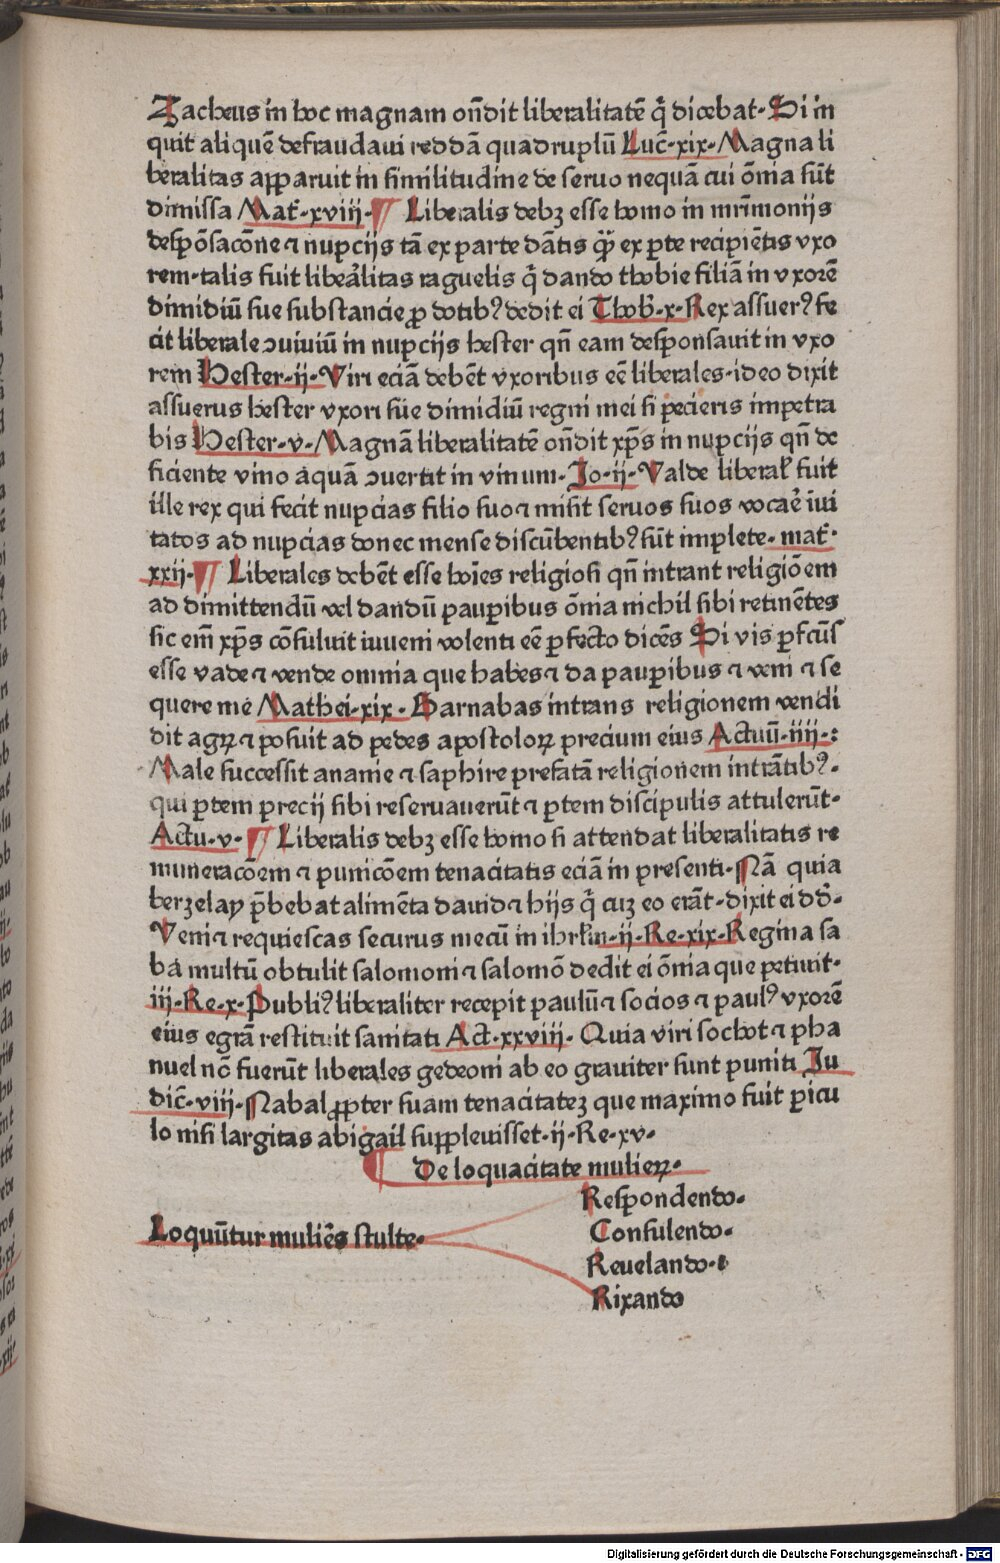 Zacheus in hoc magnam ondit liberalitatē q̄ dicebat· Si in
quit aliquē defraudaui reddā quadruplū Luc̄·xix· Magna li
beralitas apparuit in similitudine de seruo nequā cui ōnia sūt
dimissa Mat̄·xviij· ¶ Liberalis debꝫ esse homo in mr̄imonijs
despōsacōne ⁊ nupcijs tā ex parte dātis qꝫ̄ ex ꝑte recipiētis vxo
rem· talis fuit libeālitas raguelis q̄ dando thobie filiā in vxorē
dimidiū sue substancie ꝓ dotibꝰ dedit ei Thob̄·x· Rex assuerꝰ fe
cit liberale ꝯuiuiū in nupcijs hester qn̄ eam desponsauit in vxo
rem Hester·ij· Viri eciā debēt vxoribus eē liberales· ideo dixit
assuerus hester vxori sue dimidiū regni mei si pecieris impetra
bis Hester·v· Magnā liberalitatē on̄dit xp̄s in nupcijs qn̄ de
ficiente vino aquā ꝯuertit in vinum· Jo·ij· Valde liberal̄ fuit
ille rex qui fecit nupcias filio suo ⁊ misit seruos suos vocae̓ īui
tatos ad nupcias donec mense discūbentibꝰ sūt implete· mat̄·
xxij· ¶ Liberales debēt esse hoīes religiosi qn̄ intrant religiōem
ad dimittendū vel dandū pauꝑibus ōnia nichil sibi retinētes
sic em̄ xp̄s cōsuluit iuueni volenti eē ꝑfecto dicēs Si vis ꝑfcūs
esse vade ⁊ vende omnia que habes ⁊ da pauꝑibus ⁊ veni ⁊ se
quere me Mathei·xix· Barnabas intrans religionem vendi
dit agrꝝ ⁊ posuit ad pedes apostolorꝝ precium eius Actuū·iiij·:
Male successit ananie ⁊ saphire prefatā religionem intrātibꝰ·
qui ꝑtem precij sibi reseruauerūt ⁊ ꝑtem discipulis attulerūt·
Actu·v· ¶ Liberalis debꝫ esse homo si attendat liberalitatis re
muneracōem ⁊ punicōem tenacitatis eciā in presenti· Nā quia
berzelay p̄bebat alimēta dauid ⁊ hijs q̄ cuꝫ eo erāt· dixit ei dd̄·
Veni ⁊ requiescas securus mecū in ihrl̄m·ij·Re·xix· Regina sa
ba multū obtulit salomoni ⁊ salomō dedit ei ōnia que petiuit·
iij·Re·x· Publiꝰ liberaliter recepit paulū ⁊ socios ⁊ paulꝰ vxorē
eius egrā restituit sanitati Act̄·xxviij· Quia viri sochot ⁊ pha
nuel nō fuerūt liberales gedeoni ab eo grauiter sunt puniti Ju
dic̄·viij· Nabal ꝓpter suam tenacitateꝫ que maximo fuit ꝑicu
lo nisi largitas abigail suppleuisset·ij·Re·xv·
¶ De loquacitate mulierꝝ·
Respondendo·
Consulendo·
Loquūtur muliēs stulte·
Reuelando·⁊
Rixando
Digitalisierung gefördert durch die Deutsche Forschungsgemeinschaft - DFG